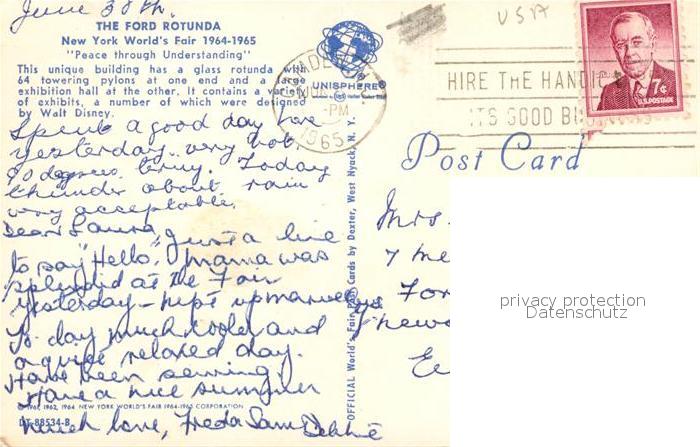 June 30th.
USA
THE FORD ROTUNDA
New York World's Fair 1964-1965
"Peace through Understanding"
This unique building has a glass rotunda with
64 towering pylons at one end and a large
exhibition hall at the other. It contains a variety
of exhibits, a number of which were designed
by Walt Disney.
UNISPHERE®
PM
1965
HIRE THE HANDIC
IT'S GOOD BUSINESS
7¢
U.S. POSTAGE
Post Card
Spent a good day here
yesterday very hot
90 degrees. Today
thunder about rain
very acceptable.
Dear Laura, Just a line
to say "Hello." Mama was
splendid at the Fair
yesterday - kept up marvelously
To day much cooler and
a quiet relaxed day.
Have been sewing.
Have a nice summer
Much love, Freda Sam Debbie
© 1961, 1962, 1964 NEW YORK WORLD'S FAIR 1964-1965 CORPORATION
DT-88534-B
OFFICIAL World's Fair Post Cards by Dexter, West Nyack, N. Y.
Mrs.
7 Me
For
privacy protection
Datenschutz